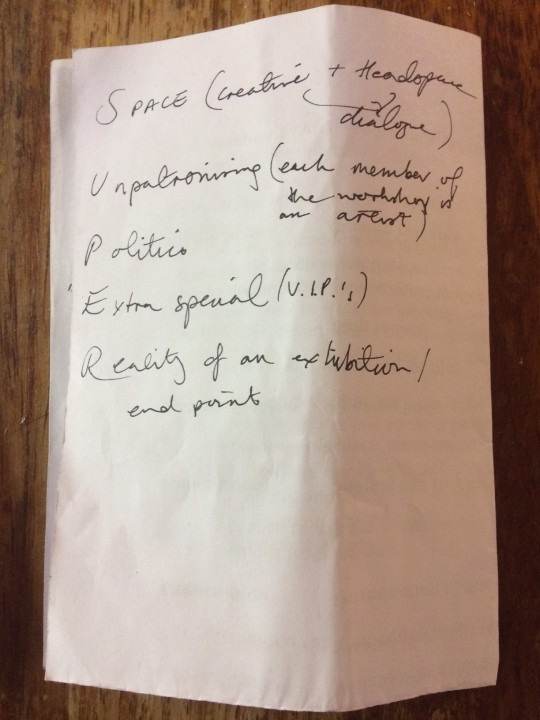 SPACE (creative + Headspace
dialogue)
Unpatronising (each member of
the workshop is
an artist)
Politics
Extra special (V.I.P.'s)
Reality of an exhibition /
end point